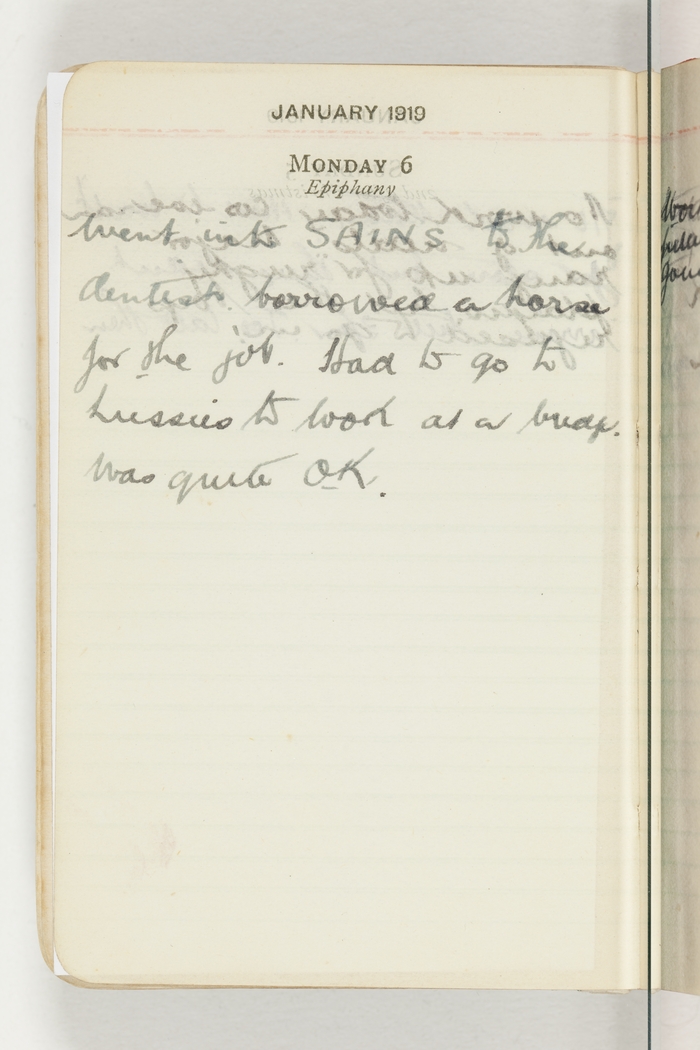 JANUARY 1919
MONDAY 6
Epiphany
Went into SAINS to the
dentist. borrowed a horse
for the job. Had to go to
Lussies to look at a bridge.
Was quite OK.